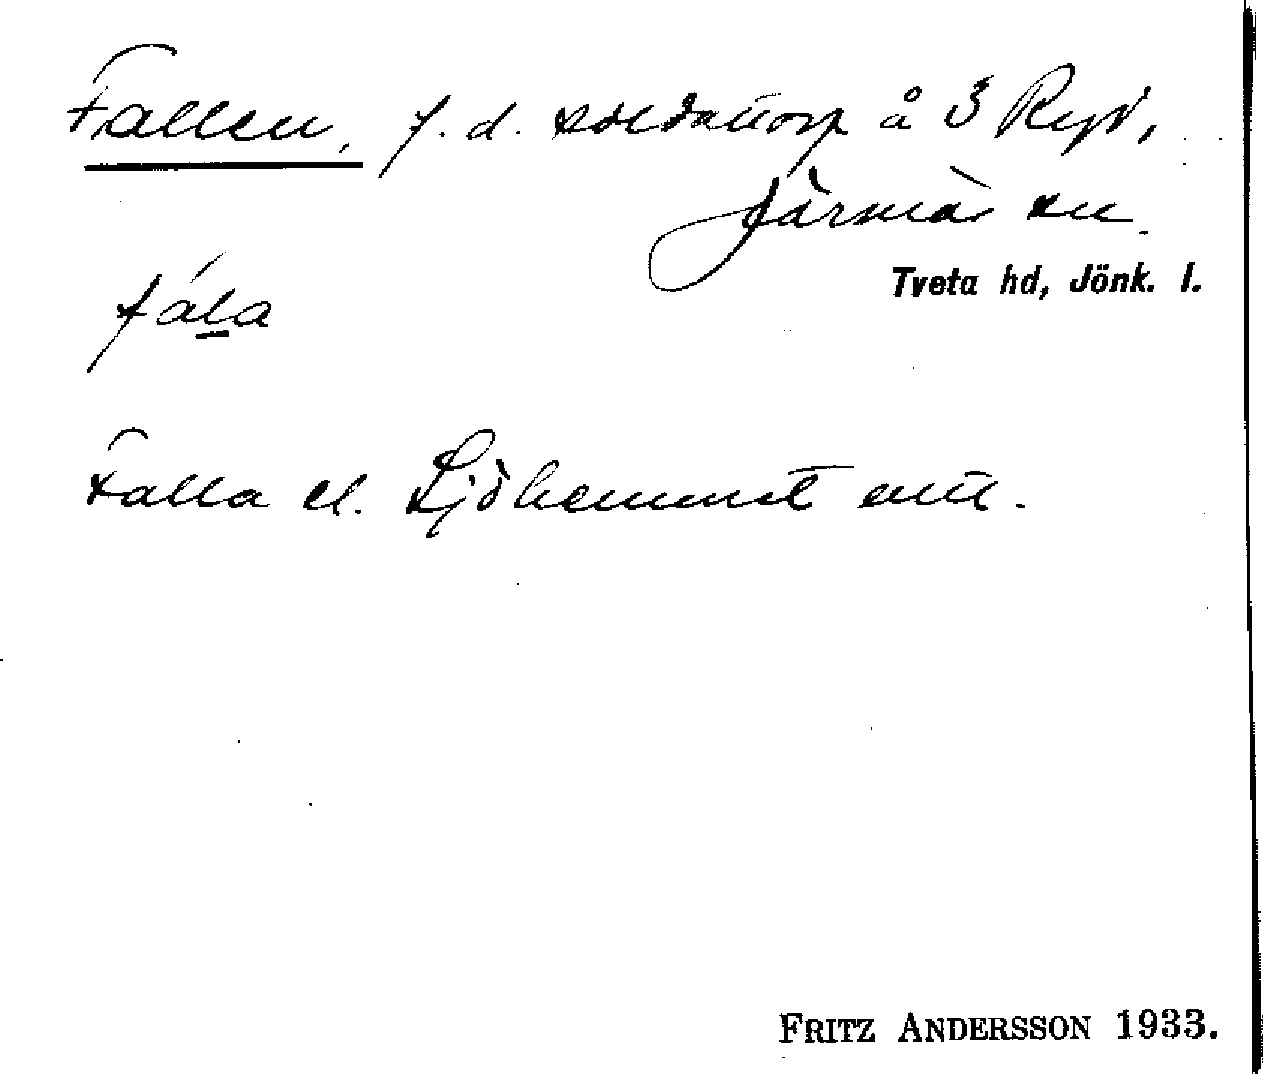 Fallen, f. d. soldattorp å 3 Ryd,
Järsnäs sn.
Tveta hd, Jönk. l.
fála
Falla el. Sjöhemmet enl.
FRITZ ANDERSSON 1933.